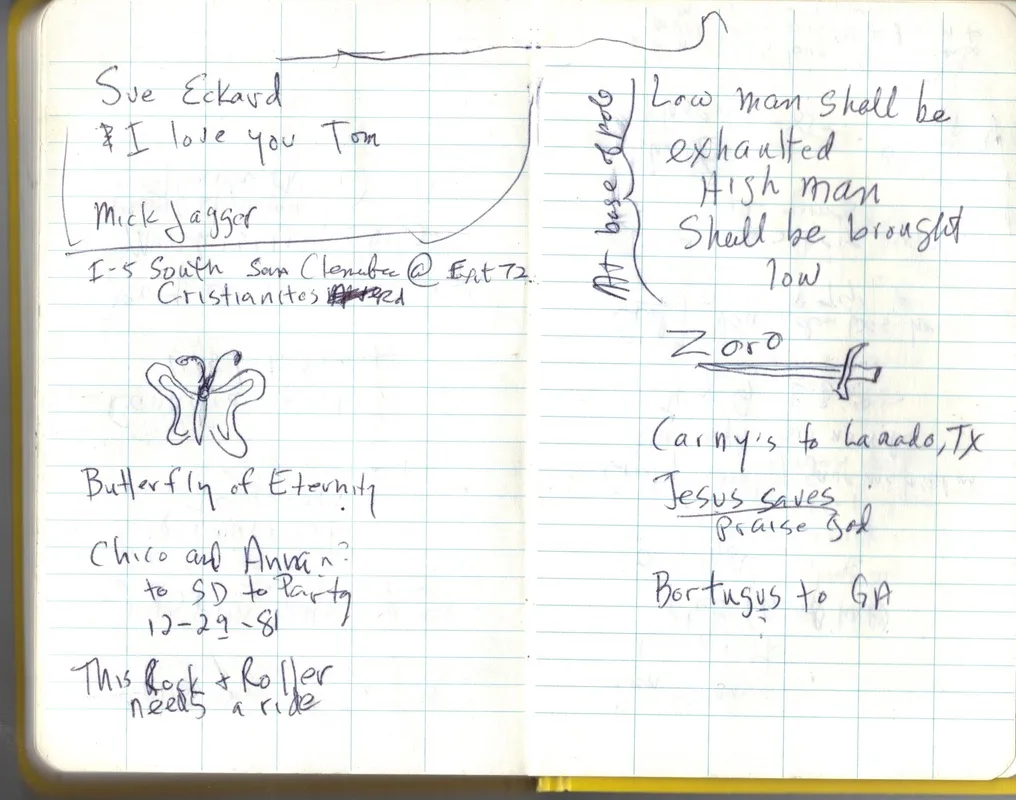 Sue Eckard
& I love you Tom
Mick Jagger
I-5 South San Clemente @ Exit 72.
Cristianitos Rd
Butterfly of Eternity
Chico and Anna
to SD to Party
12-29-81
This Rock + Roller
needs a ride
At base of pole
Low man shall be
exhaulted
High man
Shall be brought
low
Zoro
Carny's to Larado, TX
Jesus saves
Praise God
Bortugus to GA